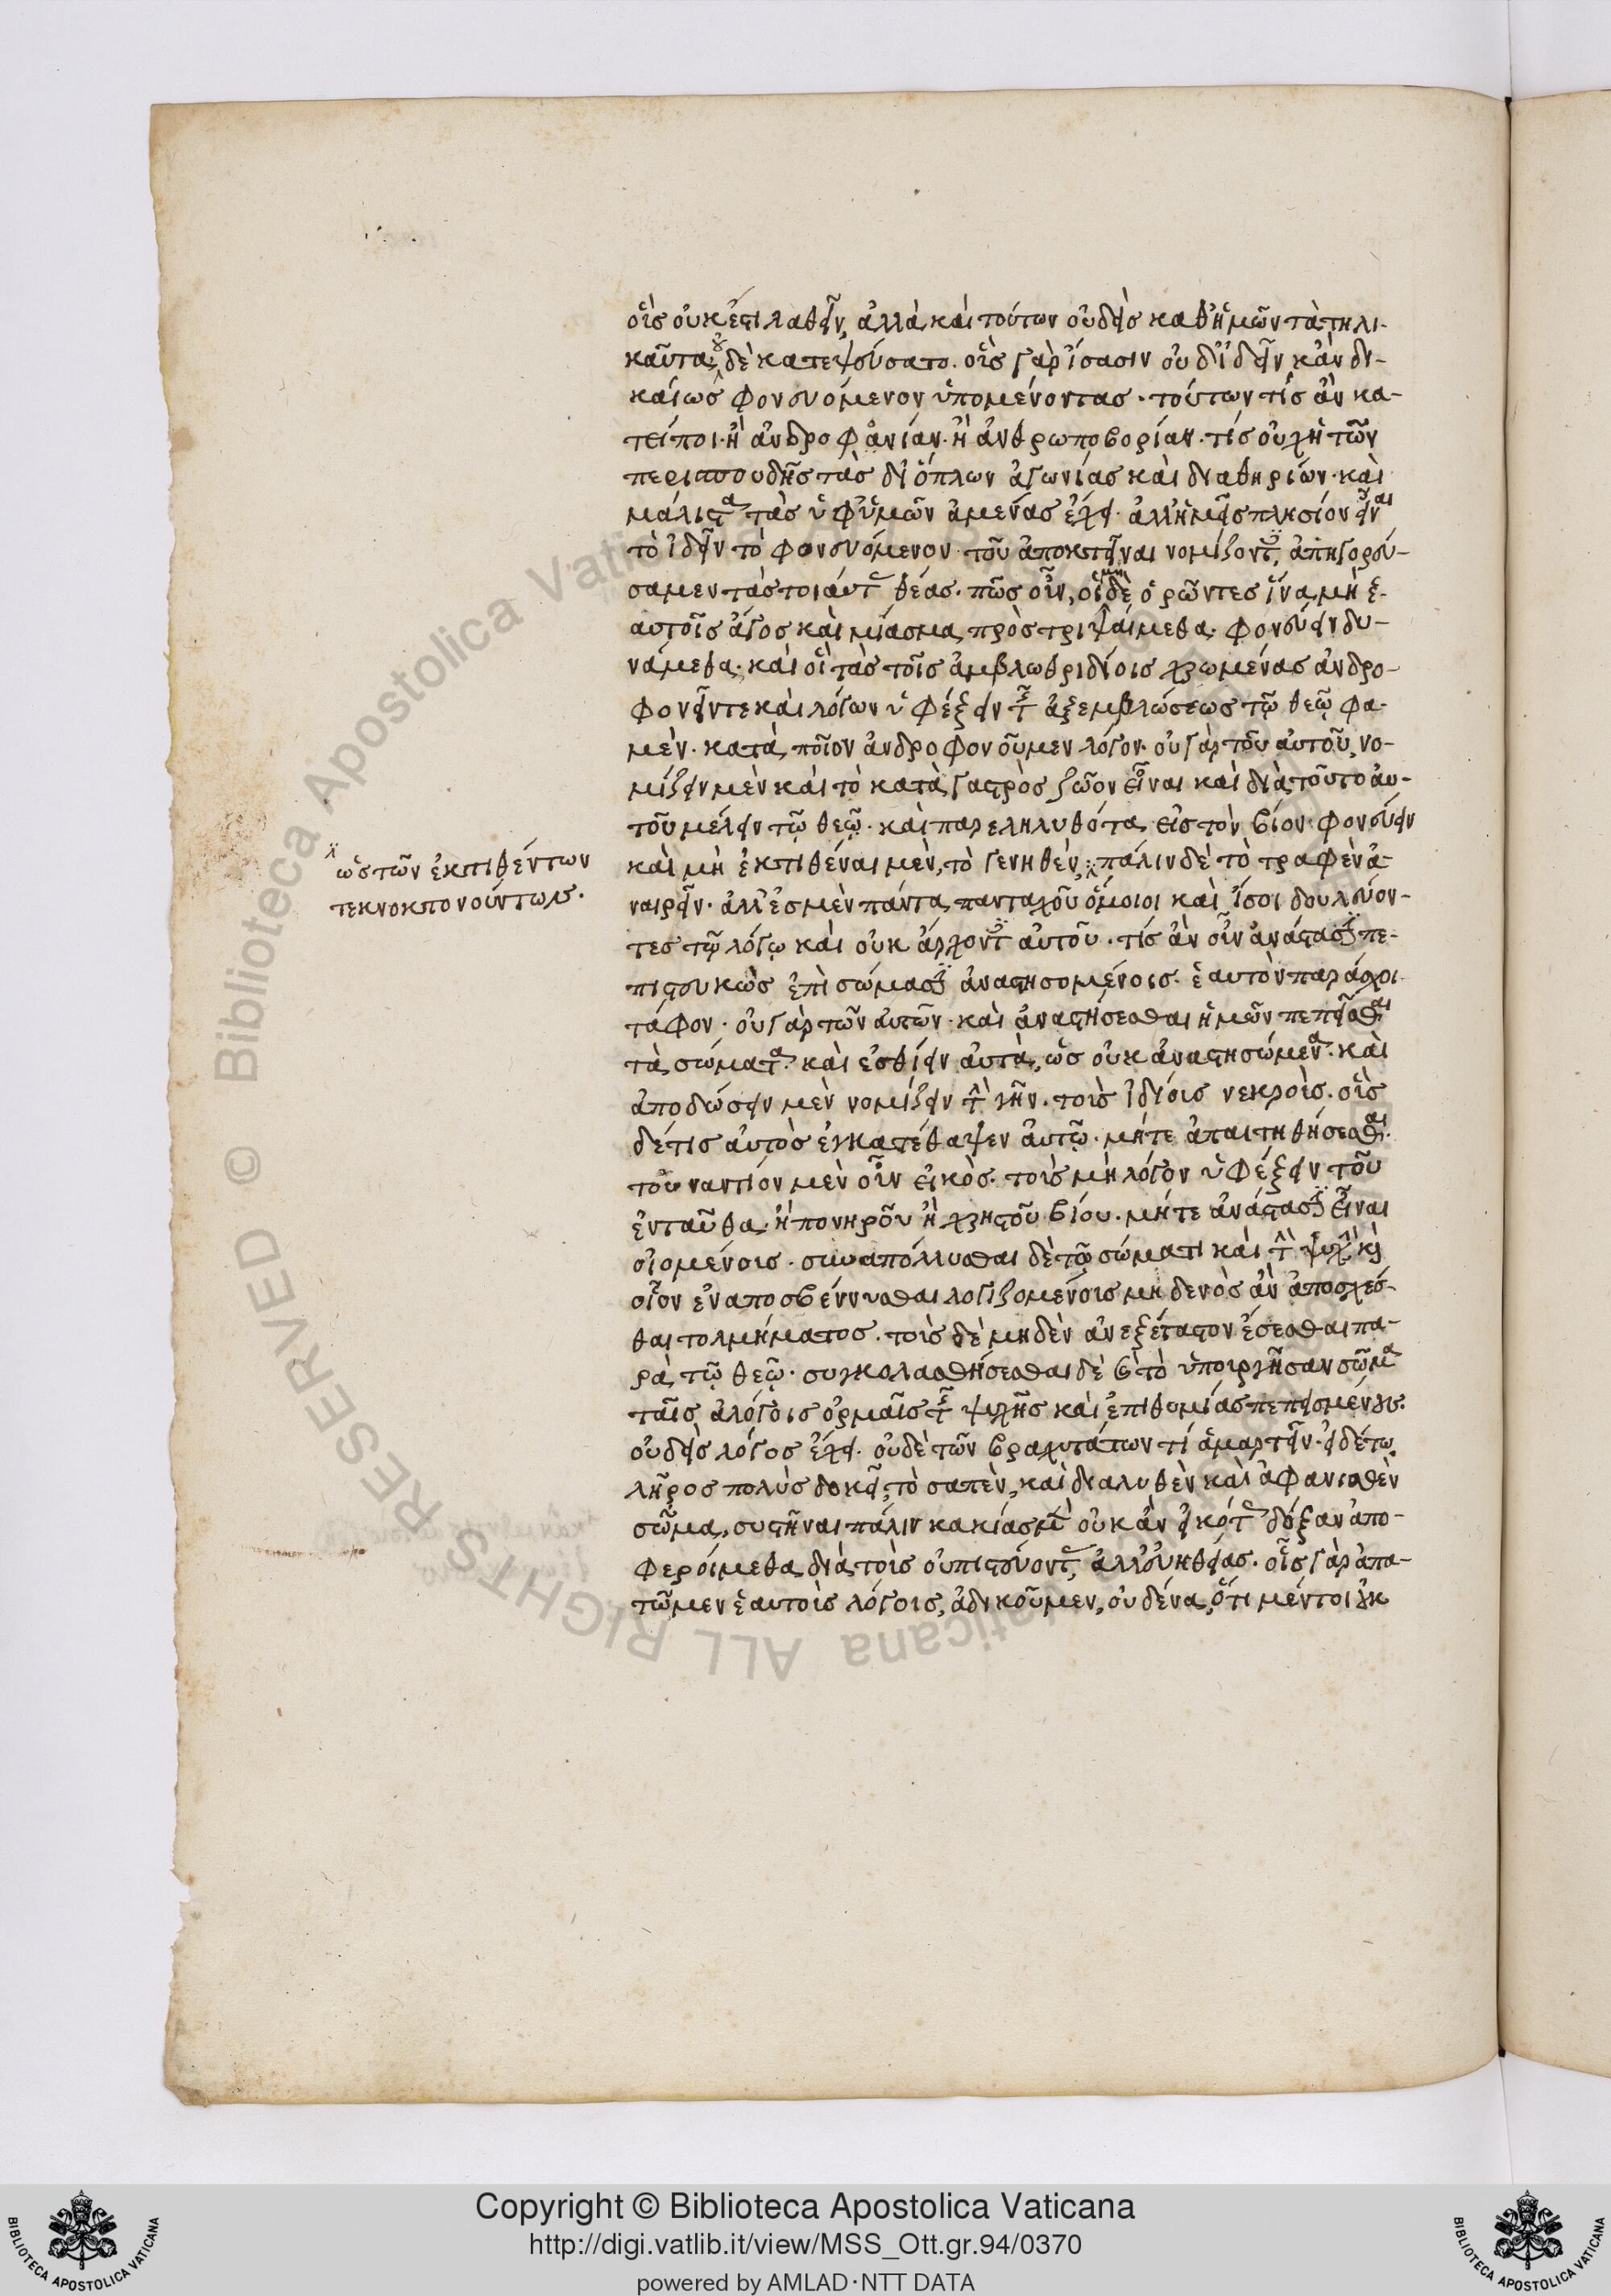 οἷς οὐκ ἔστι λαθεῖν, ἀλλὰ καὶ τούτων οὐδεὶς καθ' ἡμῶν τὰ τηλι-
καῦτα δὲ κατεψεύσατο. οἷς γὰρ ἴσασιν οὐδ' ἰδεῖν κἂν δι-
καίως φονευόμενον ὑπομένοντας. τούτων τίς ἂν κα-
τείποι. ἢ ἀνδροφονίαν. ἢ ἀνθρωποβορίαν. τίς οὐχ ἢ τῶν
περισπουδῆς τὰς δι' ὅπλων ἀγωνίας καὶ διαθηρίων. καὶ
μάλιστα τὰς ὑφ' ὑμῶν ἀμενάς ἔχει. ἀλλ' ἡμεῖς πλησίον εἶναι
τὸ ἰδεῖν τὸ φονευόμενον τοῦ ἀποκτεῖναι νομίζοντες, ἀπηγορεύ-
σαμεν τὰς τοιαύτας θέας. πῶς οὖν, οἱ μηδὲ ὁρῶντες ἵνα μὴ ἑ-
αυτοῖς ἄγος καὶ μίασμα προστριψαίμεθα. φονεύειν δυ-
νάμεθα. καὶ οἳ τὰς τοῖς ἀμβλωθριδίοις χρωμένας ἀνδρο-
φονεῖν τε καὶ λόγων ὑφέξειν τῆς ἀξεμβλώσεως τῷ θεῷ φα-
μὲν. κατὰ ποῖον ἀνδροφονοῦμεν λόγον. οὐ γὰρ τοῦ αὐτοῦ νο-
μίζειν μὲν καὶ τὸ κατὰ γαστρὸς ζῶον εἶναι καὶ διὰ τοῦτο αὐ-
τοῦ μέλειν τῷ θεῷ. καὶ παρεληλυθότα εἰς τὸν βίον φονεύειν
καὶ μὴ ἐκτιθέναι μὲν, τὸ γενηθέν, πάλιν δὲ τὸ τραφὲν ἀ-
ναιρεῖν. ἀλλ' ἐσμὲν πάντα πανταχοῦ ὅμοιοι καὶ ἴσοι δουλεύον-
τες τῷ λόγῳ καὶ οὐκ ἄρχοντες αὐτοῦ. τίς ἂν οὖν ἀνάστασιν πε-
πιστευκὼς ἐπὶ σώμασιν ἀναστησομένοις. ἑαυτὸν παράσχοι
τάφον. οὐ γὰρ τῶν αὐτῶν. καὶ ἀναστήσεσθαι ἡμῶν πεπεῖσθαι
τὰ σώματα. καὶ ἐσθίειν αὐτὰ, ὡς οὐκ ἀναστησόμενα. καὶ
ἀποδώσειν μὲν νομίζειν τὴν γῆν. τοὺς ἰδίοις νεκροὺς. οὓς
δέ τις αὐτὸς ἐγκατέθαψεν αὑτῷ. μήτε ἀπαιτηθήσεσθαι.
τοὐναντίον μὲν οὖν εἰκὸς. τοὺς μὴ λόγον ὑφέξειν τοῦ
ἐνταῦθα. ἢ πονηροῦ ἢ χρηστοῦ βίου. μήτε ἀνάστασιν εἶναι
οἰομένοις. συναπόλλυσθαι δὲ τῷ σώματι καὶ τὴν ψυχὴν καὶ
οἷον ἐναποσβέννυσθαι λογιζομένοις μηδενὸς ἂν ἀποσχέσ-
θαι τολμήματος. τοὺς δὲ μηδὲν ἀνεξέταστον ἔσεσθαι πα-
ρὰ τῷ θεῷ. συγκολασθήσεσθαι δὲ καὶ τὸ ὑπουργῆσαν σῶμα
ταῖς ἀλόγοις ὁρμαῖς τῆς ψυχῆς καὶ ἐπιθυμίας πεπεισμένους.
οὐδεὶς λόγος ἔχει. οὐδὲ τῶν βραχυτάτων τι ἁμαρτεῖν. εἰ δέ τῳ
λῆρος πολὺς δοκεῖ, τὸ σαπὲν, καὶ διαλυθὲν καὶ ἀφανισθὲν
σῶμα, συστῆναι πάλιν κακίας μὲν οὐκ ἂν εἰκότως δόξαν ἀπο-
φεροίμεθα διὰ τοὺς οὐ πιστεύοντας, ἀλλ' εὐηθείας. οἷς γὰρ ἀπα-
τῶμεν ἑαυτοὺς λόγοις, ἀδικοῦμεν, οὐδένα, ὅτι μέντοι οὐκ
ὡς τῶν ἐκτιθέντων
τεκνοκτονούντων.
Copyright © Biblioteca Apostolica Vaticana
http://digi.vatlib.it/view/MSS_Ott.gr.94/0370
powered by AMLAD·NTT DATA
BIBLIOTECA APOSTOLICA VATICANA
BIBLIOTECA APOSTOLICA VATICANA
© Biblioteca Apostolica Vaticana ALL RIGHTS RESERVED